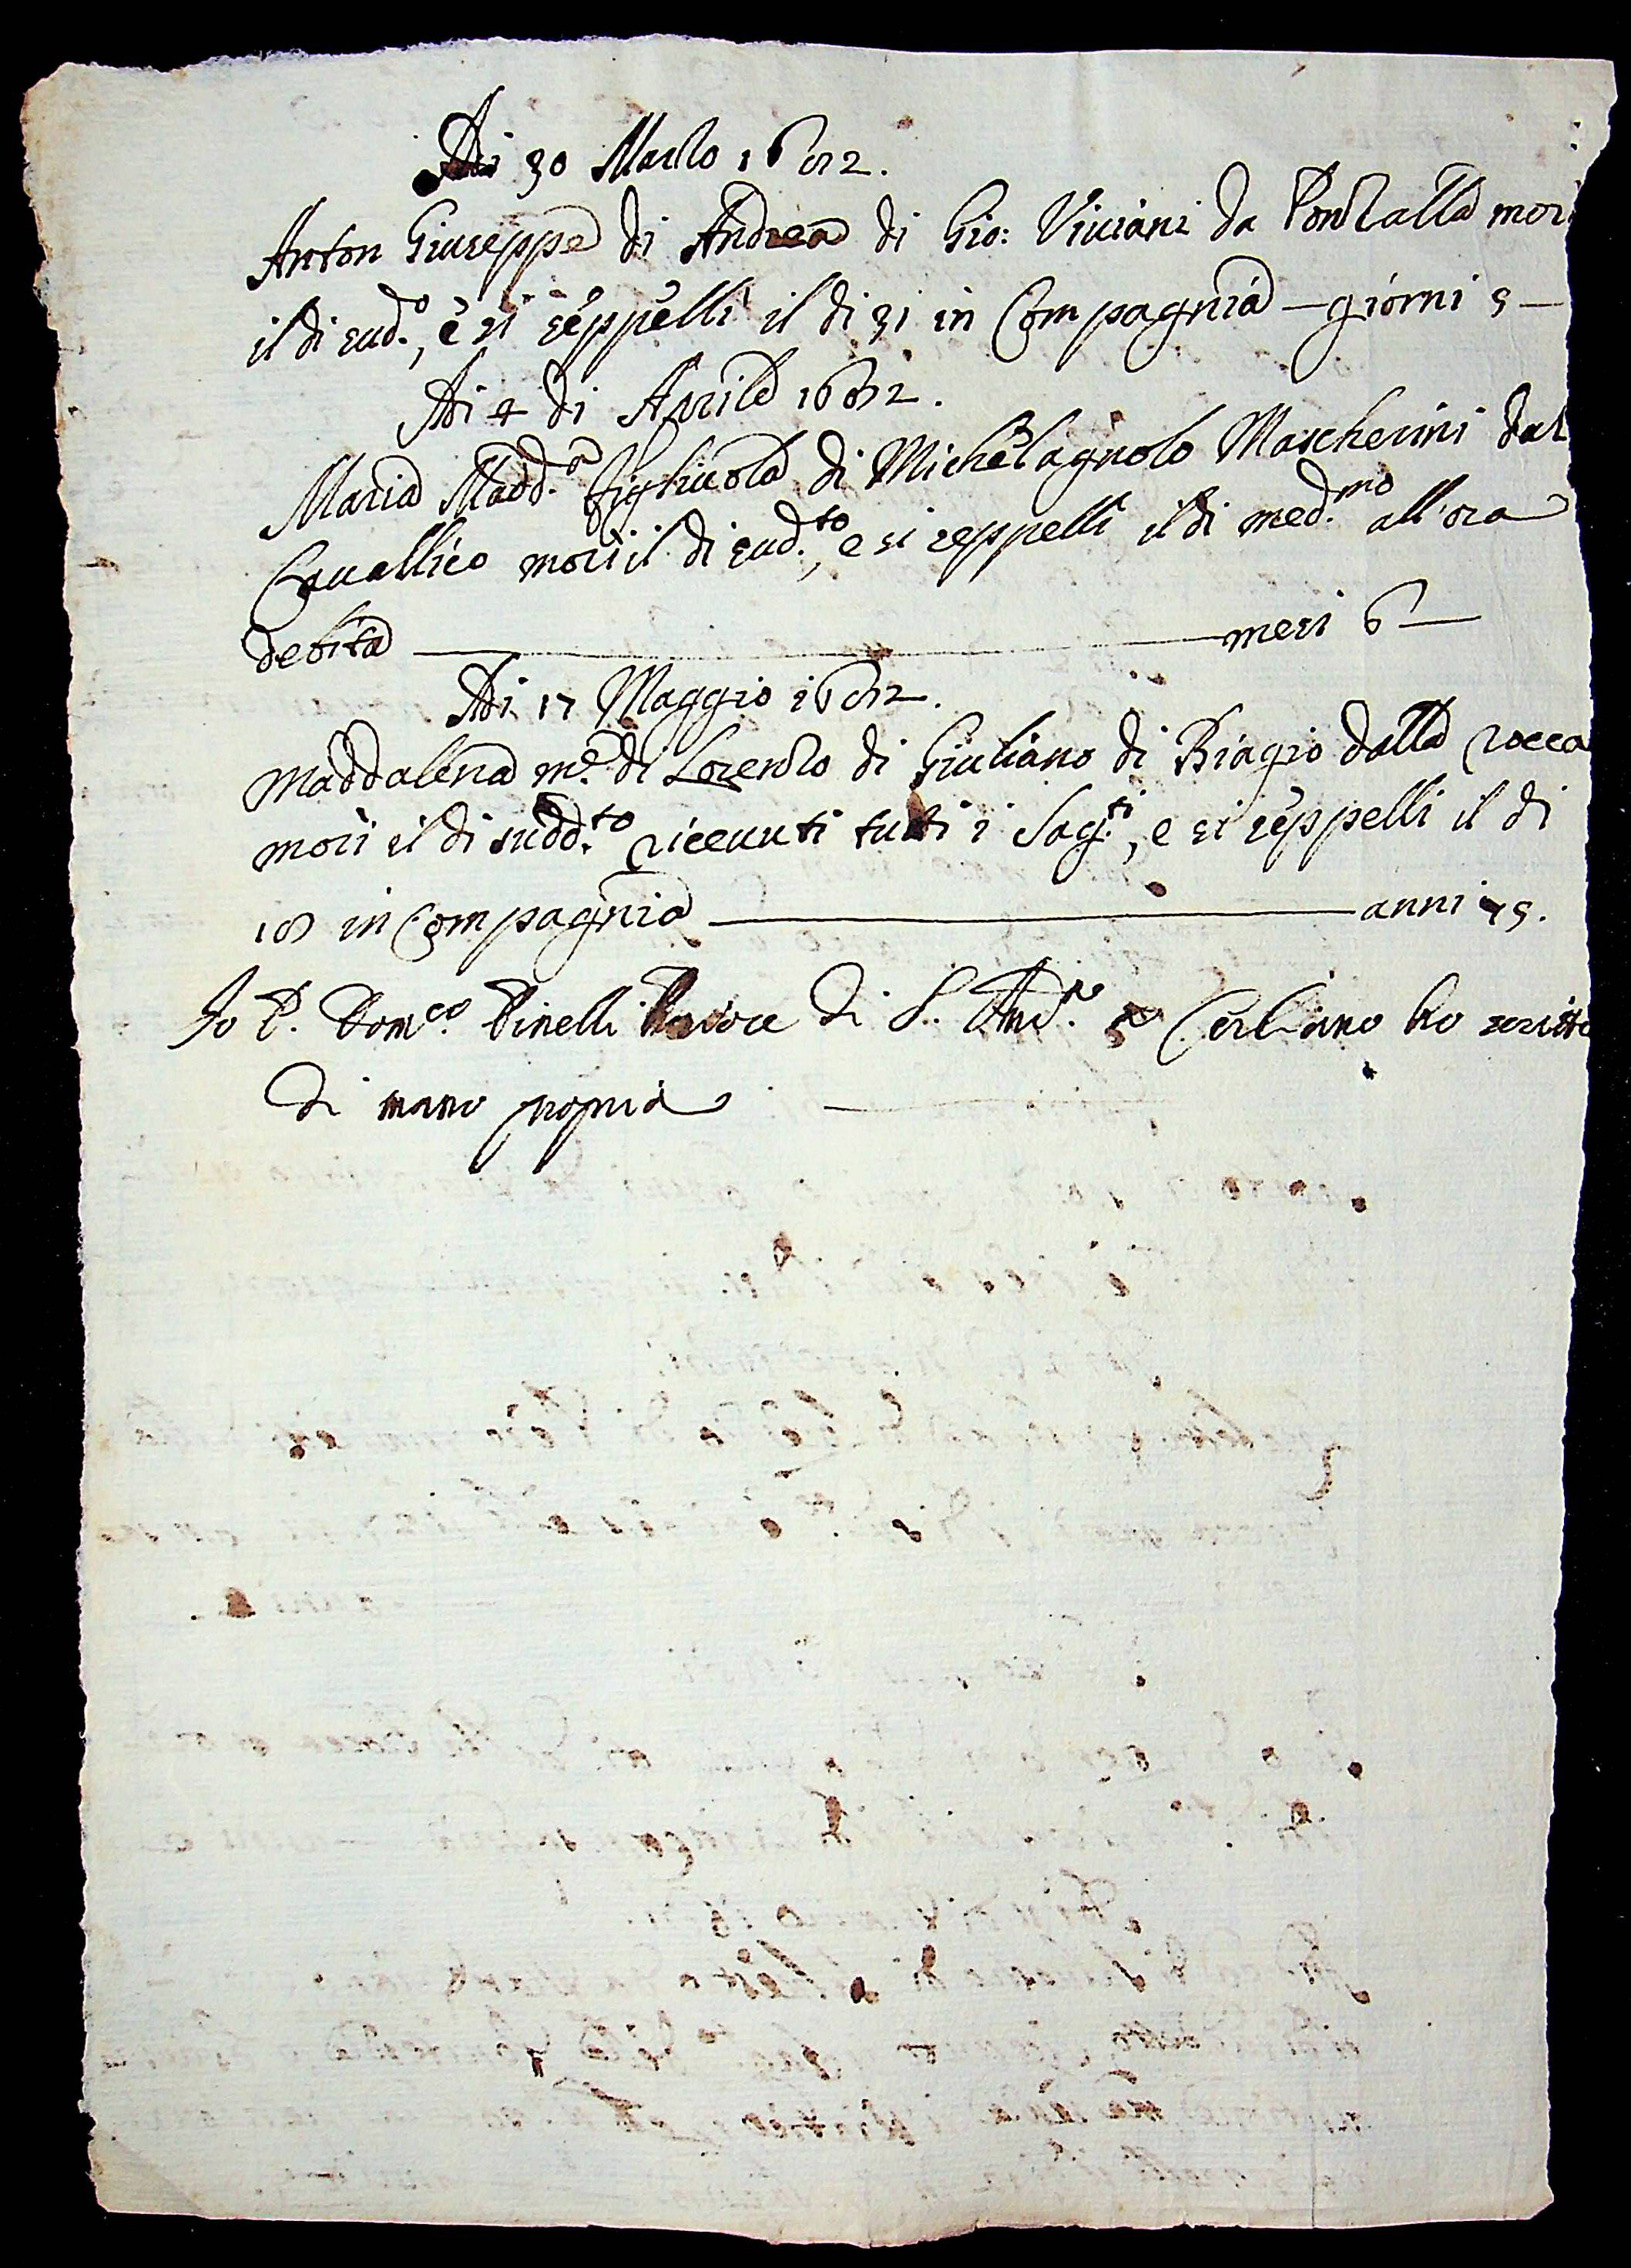 Adi 30 Marzo 1682.
Anton Giuseppe di Andrea di Gio: Viviani da Pontalla mori
il di sud.o, e si seppelli il di 31 in Compagnia – giorni 5 –
Adi 4 di Aprile 1682.
Maria Madd.a figliuola di Michelagnolo Mascherini dal
Cavallico mori il di sud.to, e si seppelli il di med.mo all'ora
debita — mesi 6 —
Adi 17 Maggio 1682.
Maddalena m.e di Lorenzo di Giuliano di Biagio dalla Rocca
mori il di sudd.to ricevuti tutti i Sag.ti, e si seppelli il di
18 in Compagnia — anni 75.
Io P. Dom.co Pinelli di S. And.a a Cerliano ho scritto
di mano propria